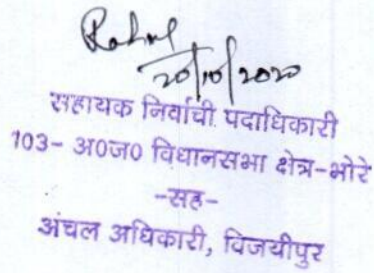 20/10/2020
सहायक निर्वाची पदाधिकारी
103- अ०ज० विधानसभा क्षेत्र-भोरे
-सह-
अंचल अधिकारी, विजयीपुर